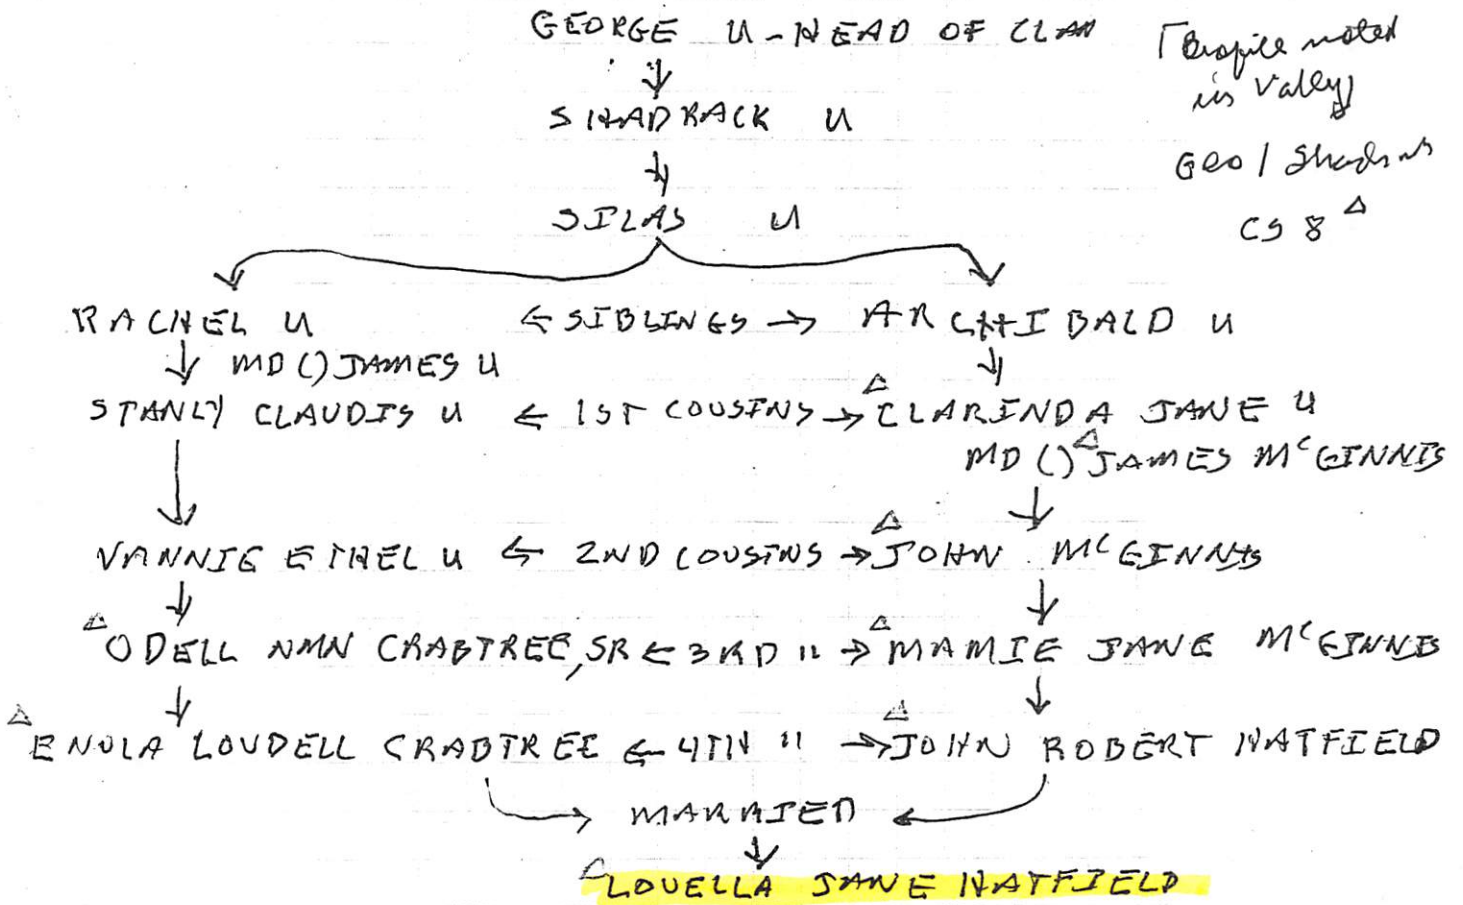 GEORGE U - HEAD OF CLAN
noted
in Valley
SHADRACK U
Geo /
SILAS U
CS 8 Δ
RACHEL U ← SIBLINGS → ARCHIBALD U
MD () JAMES U
STANLY CLAUDIS U ← 1ST COUSINS → Δ CLARINDA JANE U
MD () Δ JAMES McGINNIS
VANNIE ETHEL U ← 2ND COUSINS → Δ JOHN McGINNIS
Δ ODELL NMN CRABTREE, SR ← 3RD " → Δ MAMIE JANE McGINNIS
Δ ENOLA LOUDELL CRABTREE ← 4TH " → Δ JOHN ROBERT HATFIELD
MARRIED
Δ LOUELLA JANE HATFIELD